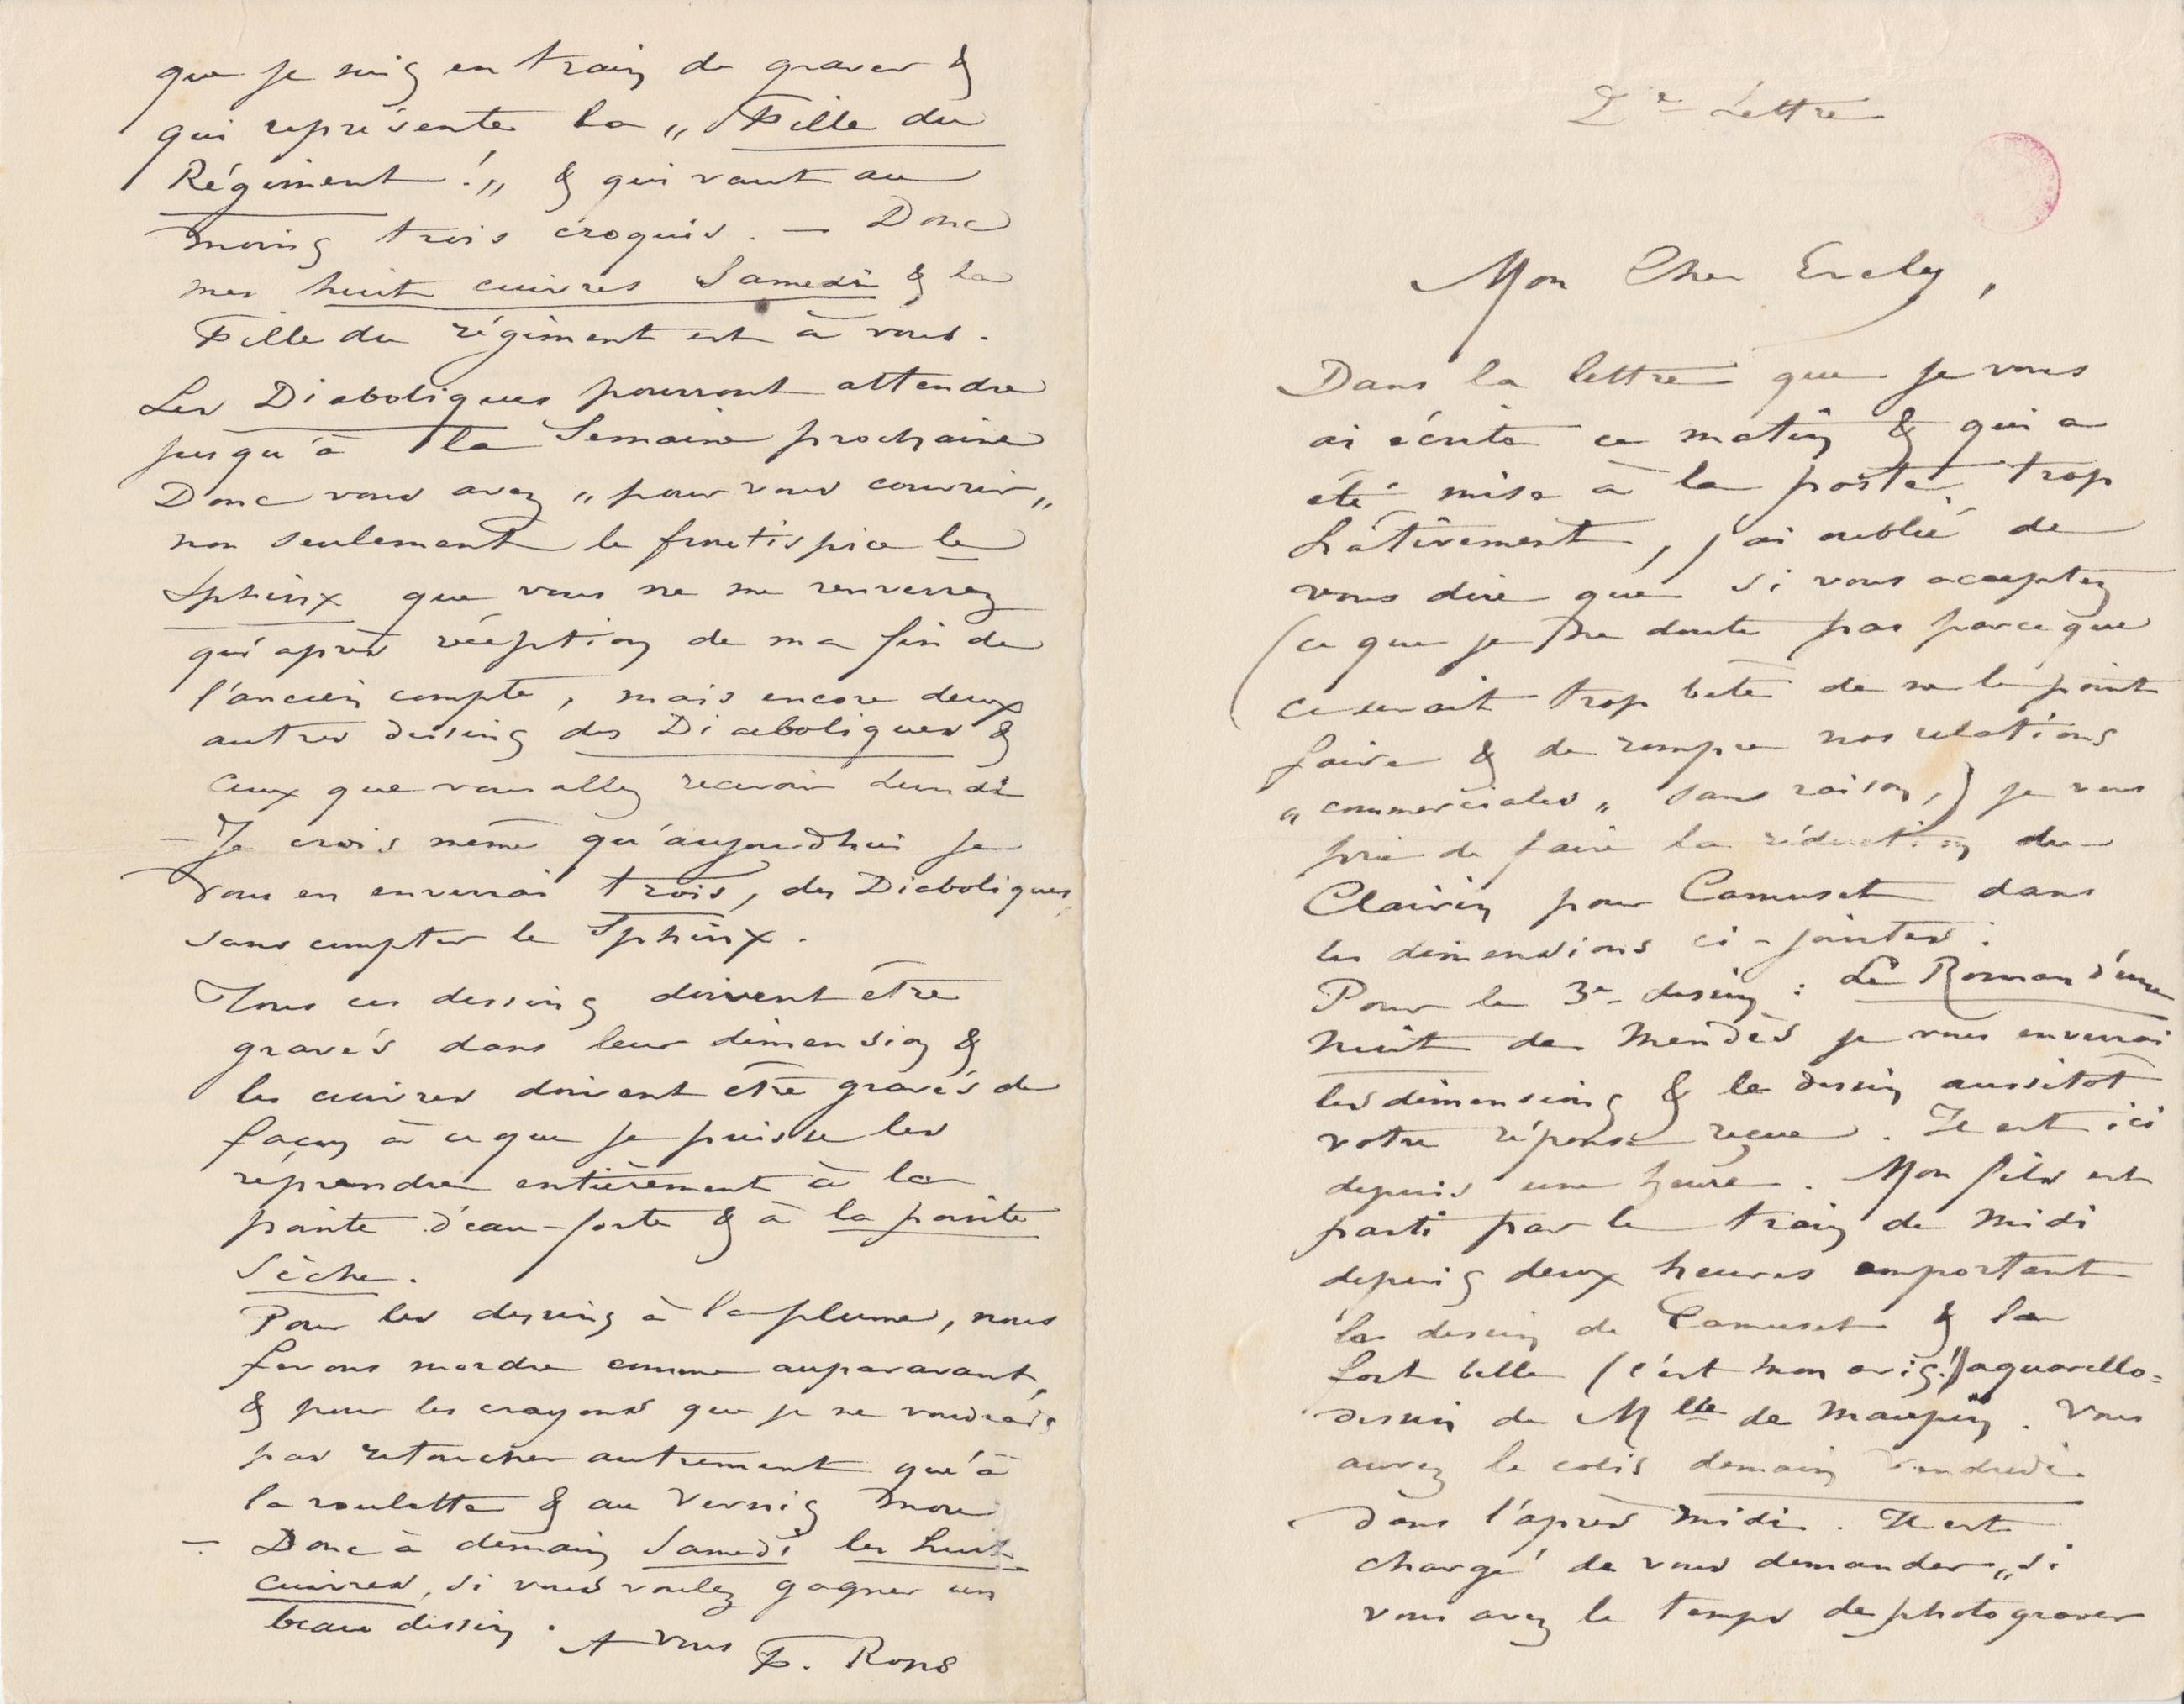 2e Lettre
Mon Cher Evely,
Dans la lettre que je vous
ai écrite ce matin & qui a
été mise à la poste trop
hâtivement, j'ai oublié de
vous dire que si vous acceptez
(ce que je ne doute pas parce que
ce serait trop bête de ne le point
faire & de rompre nos relations
„ commerciales „ sans raison,) je vous
prie de faire la réduction du
Clairin pour Camuset dans
les dimensions ci-jointes :
Pour le 3e dessin : Le Roman d'une
nuit de Mendès je vous enverrai
les dimensions & le dessin aussitot
votre réponse reçue. Il est ici
depuis une heure. Mon fils est
parti par le train de midi
depuis deux heures emportant
le dessin de Camuset & la
fort belle (c'est mon orig:!) aquarelle=
dessin de Mlle de Maupin. Vous
aurez le colis demain Vendredi
dans l'après midi. Il est
chargé de vous demander „si
vous avez le temps de photograver
que je suis en train de graver &
qui représente la „Fille du
Régiment!„ & qui vaut au
moins trois croquis. — Donc
mes huit cuivres Samedi & la
Fille du régiment est à vous.
Les Diaboliques pourront attendre
jusqu'à la Semaine prochaine
Donc vous avez „pour vous couvrir„
non seulement le frontispice le
Sphinx que vous ne me renverrez
qu'après réception de ma fin de
l'ancien compte, mais encore deux
autres dessins des Diaboliques &
ceux que vous allez recevoir Lundi
— Je crois même qu'aujourdhui je
vous en enverrai trois, des Diaboliques,
sans compter le Sphinx.
Tous ces dessins doivent être
gravés dans leur dimension &
les cuivres doivent être gravés de
façon à ce que je puisse les
réprendre entièrement à la
pointe d'eau-forte & à la pointe
sèche.
Pour les dessins à la plume, nous
ferons mordre comme auparavant,
& pour les crayons que je ne voudrais
pas retoucher autrement qu'à
la roulette & au Vernis mou
— Donc à demain Samedi les huit
cuivres, si vous voulez gagner un
beau dessin. A vous F. Rops